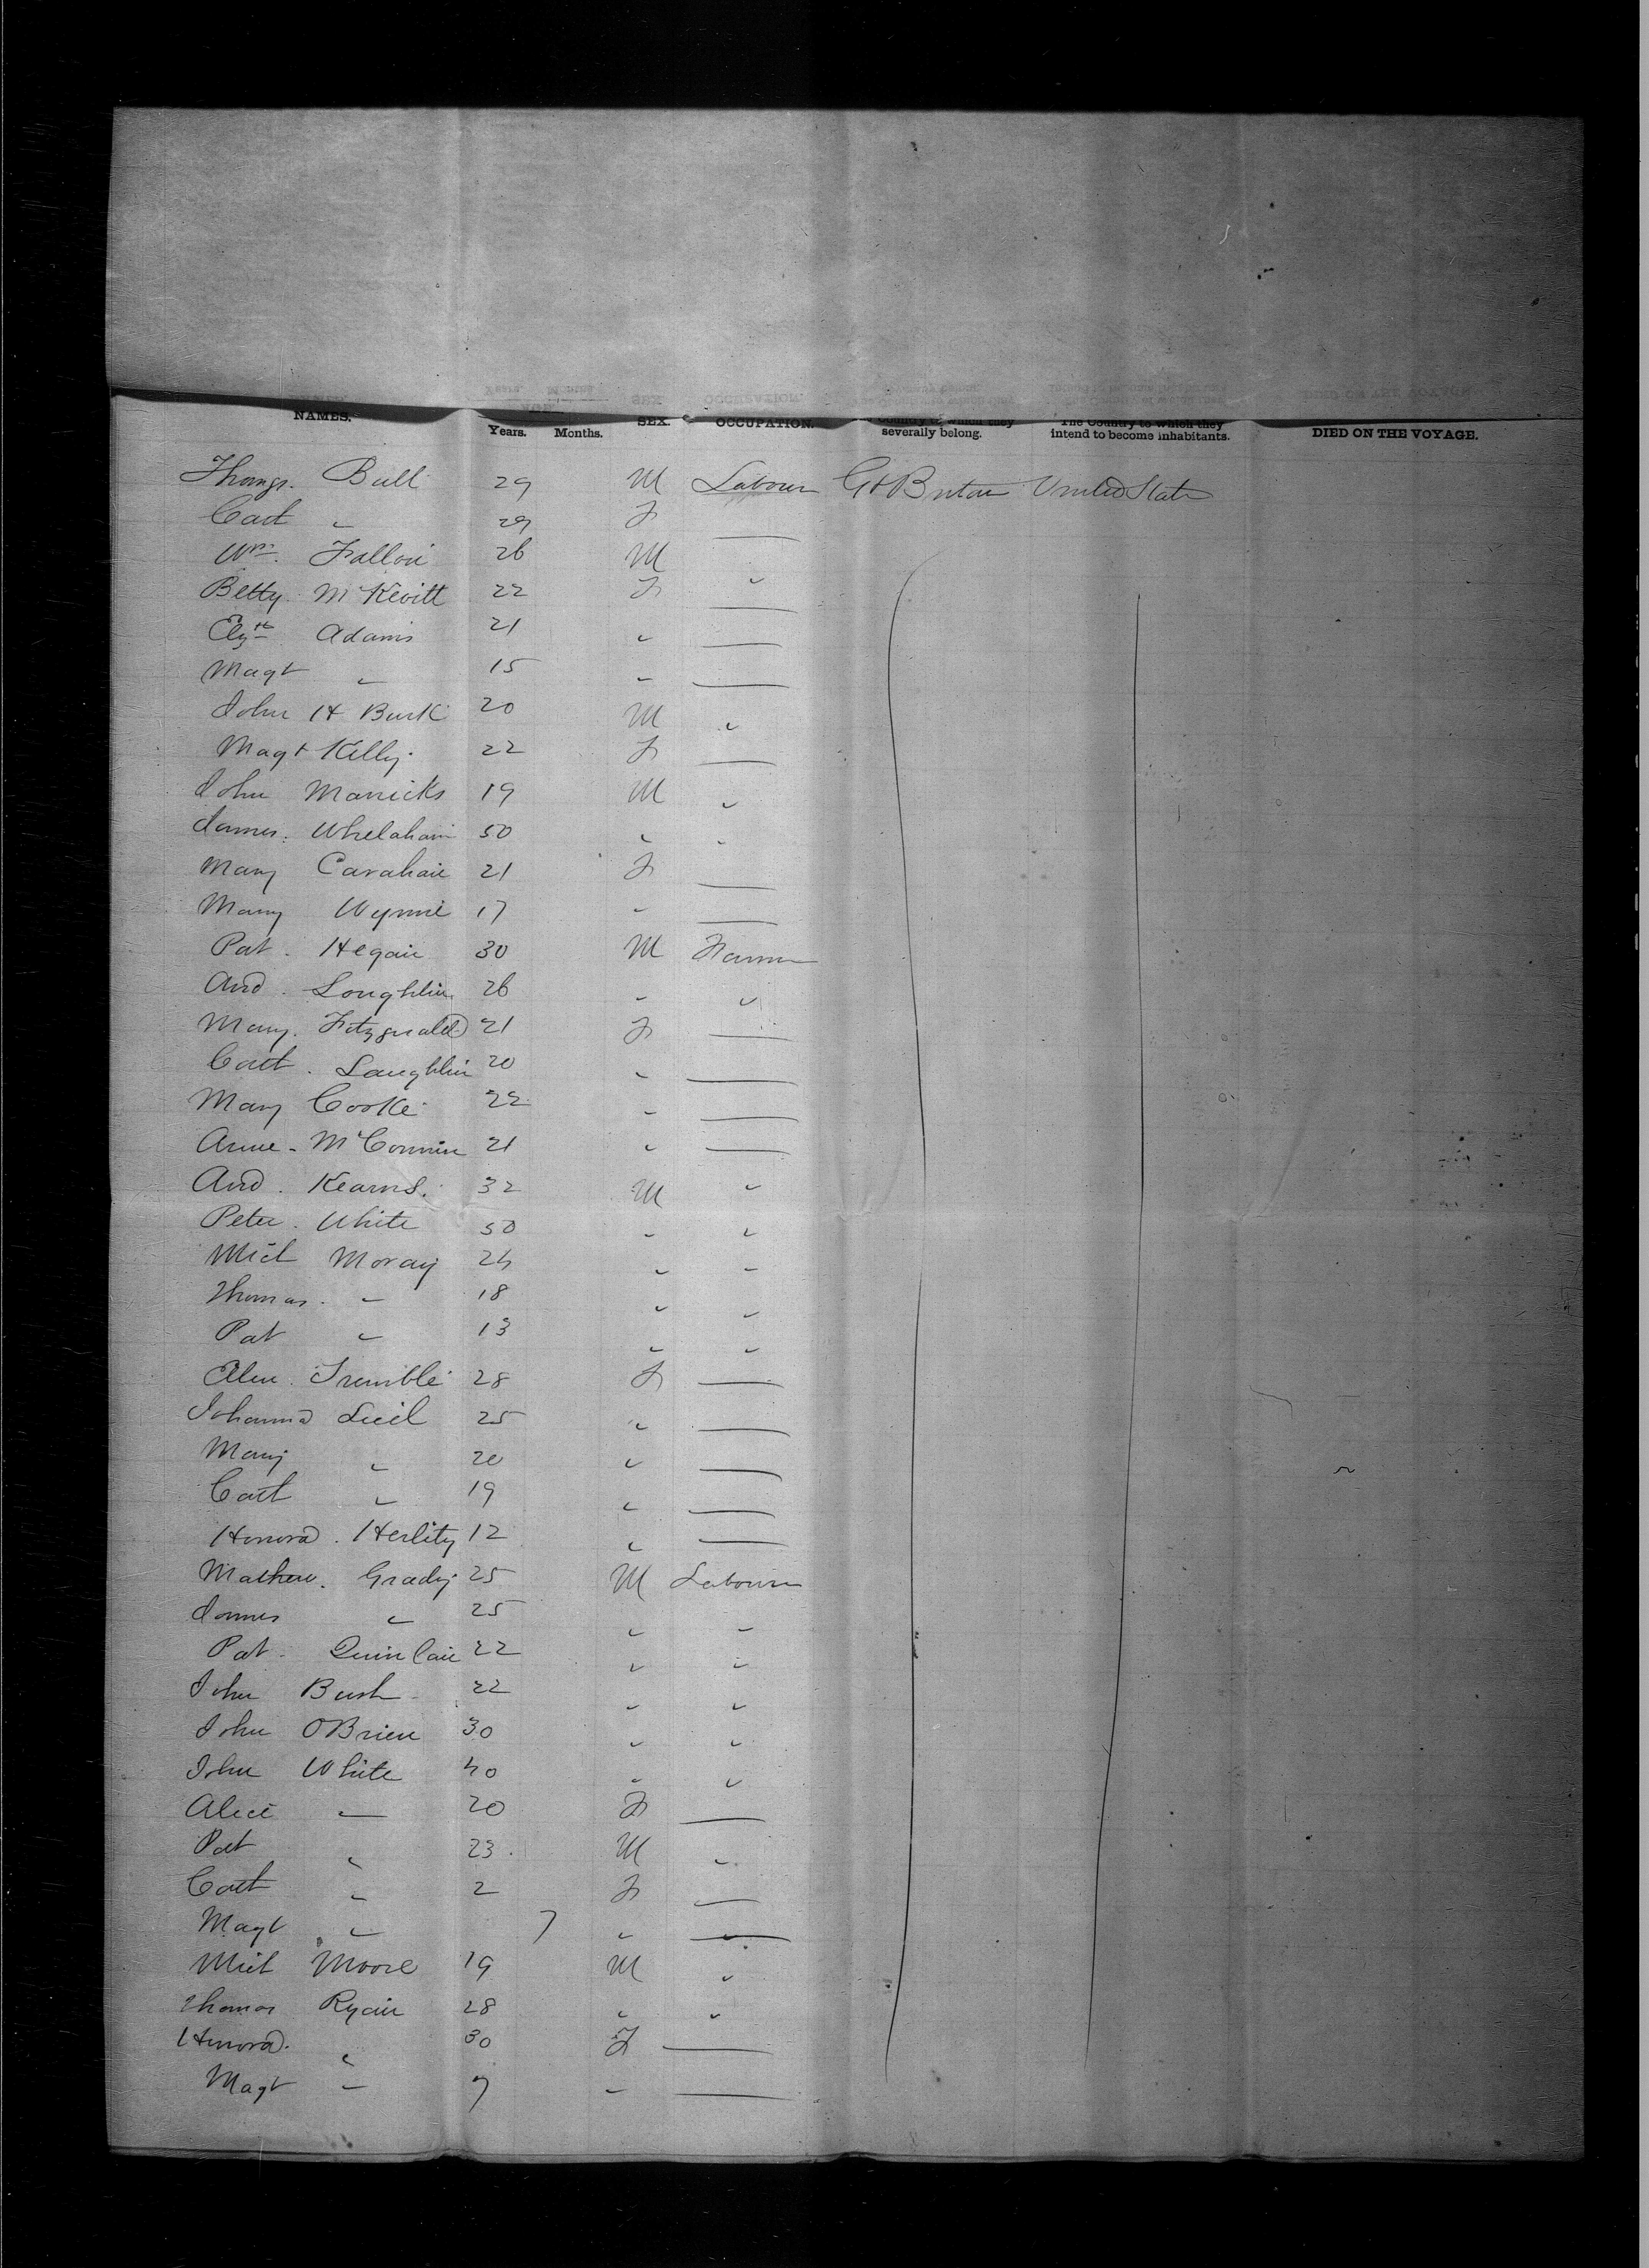 NAMES. Years. Months. SEX. OCCUPATION. Country to which they severally belong. The Country to which they intend to become inhabitants. DIED ON THE VOYAGE.
Thomas. Bull 29 M Labour Gt Britain United States
Cath " 29 F —
Wm. Fallon 26 M "
Betty McKevitt 22 F —
Elyth Adams 21 " —
Magt " 15 " —
John H Burk 20 M "
Magt Kelly 22 F —
John Marricks 19 M "
James. Whelahan 50 " "
Mary Cavahan 21 F —
Mary Wynne 17 " —
Pat. Hegan 30 M Farmer
And. Loughlin 26 " "
Mary. Fitzgerald 21 F —
Cath. Laughlin 20 " —
Mary Cooke 22 " —
Anne - McConnin 21 " —
And. Kearns. 32 M "
Peter. White 50 " "
Mich Moray 24 " "
Thomas. " 18 " "
Pat " 13 " "
Ellen. Tremble 28 F —
Johanna 25 " —
Mary " 20 " —
Cath " 19 " —
Honora. Herlity 12 " —
Mathew. Grady 25 M Labourer
James " 25 " "
Pat. Quinlan 22 " "
John Bush 22 " "
John OBrien 30 " "
John White 40 " "
Alice — 20 F —
Pat " 23. M "
Cath " 2 F —
Magt " 7 " —
Mich Moore 19 M "
Thomas Ryan 28 " "
Honora. " 30 F —
Magt " 7 " —